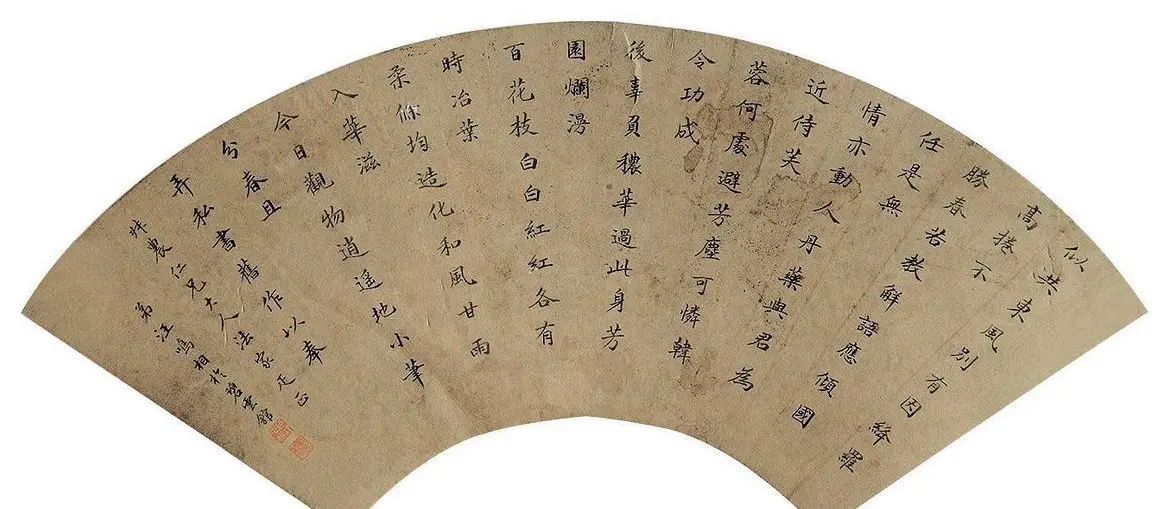 似共東風別有因絳羅
高捲不
勝春若教解語應傾國
任是無
情亦動人丹藥與君為
近侍芙
蓉何處避芳塵可憐韓
令功成
後辜負穠華過此身芳
園爛漫
百花枝白白紅紅各有
時冶葉
柔條均造化和風甘雨
入華滋
今日觀物逍遙地小華
分春且
弄私書舊作以奉
農仁兄大人法家疋正
弟汪鳴相於碧雲館